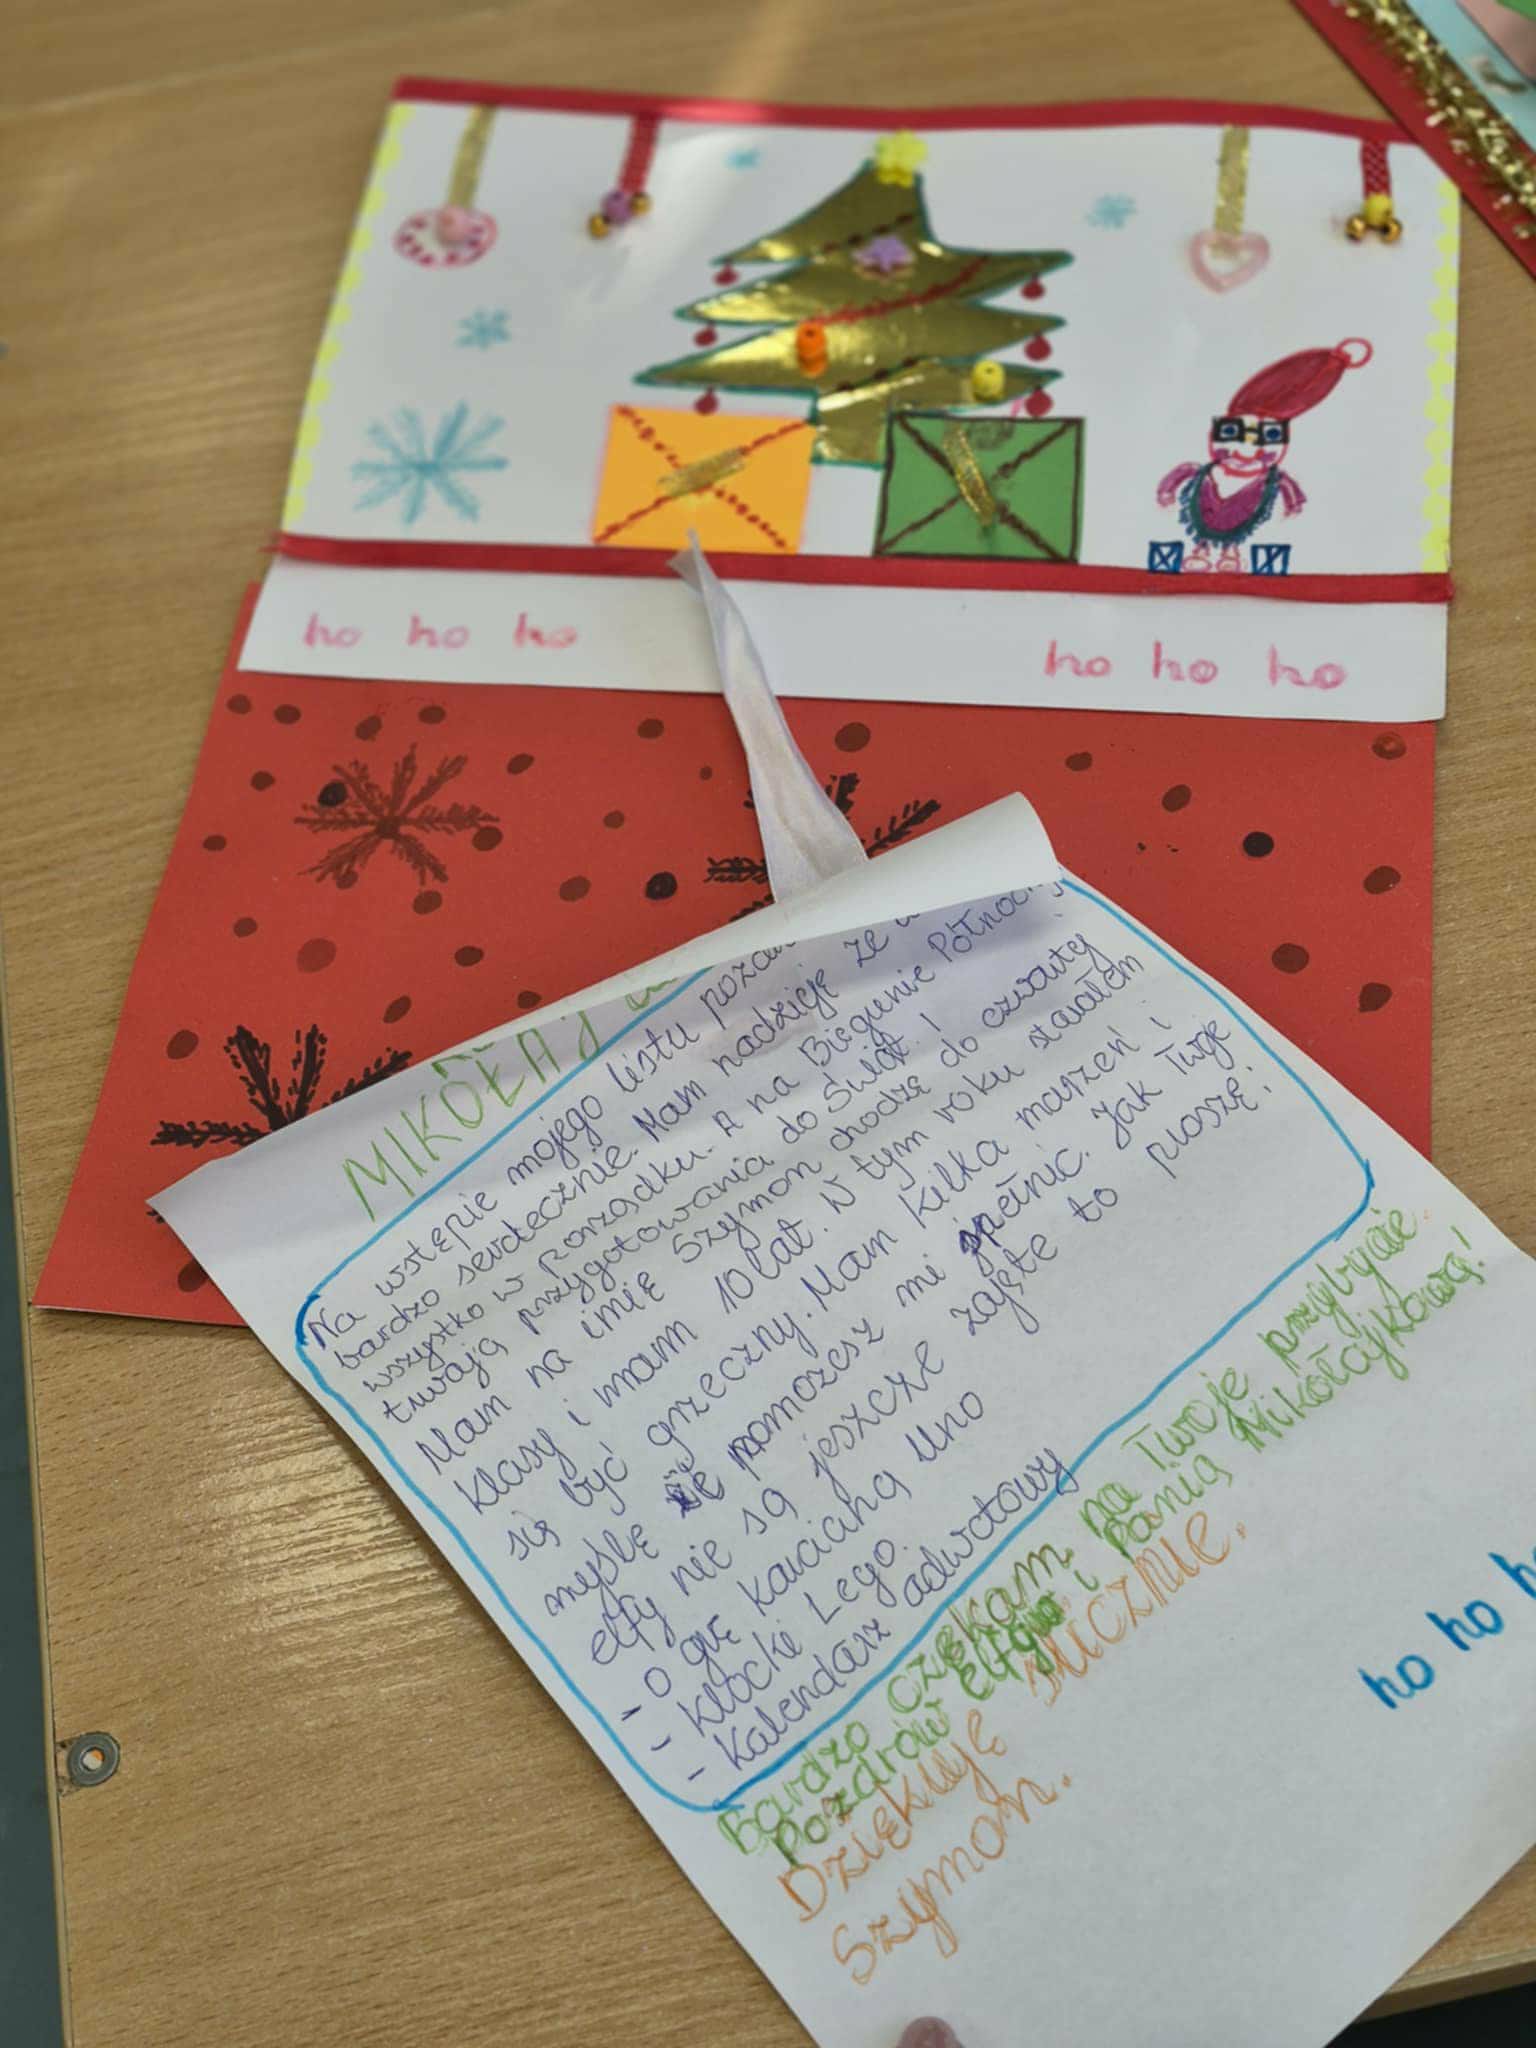 ho ho ho
ho ho ho
MIKOŁAJ
Na wstępie mojego listu
bardzo serdecznie. Mam nadzieję że
wszystko w porządku. A na Biegunie Północnym
trwają przygotowania do Świąt!
Mam na imię Szymon chodzę do czwartej
klasy i mam 10 lat. W tym roku starałem
się być grzeczny. Mam kilka marzeń i
myślę że pomożesz mi spełnić. Jak Twoje
elfy nie są jeszcze zajęte to proszę:
- o grę karcianą Uno
- klocki Lego.
- Kalendarz adwetowy
Bardzo czekam na Twoje przybycie.
Pozdrów elfów i Panią Mikołajkową!
Dziękuję ślicznie.
Szymon.
ho ho